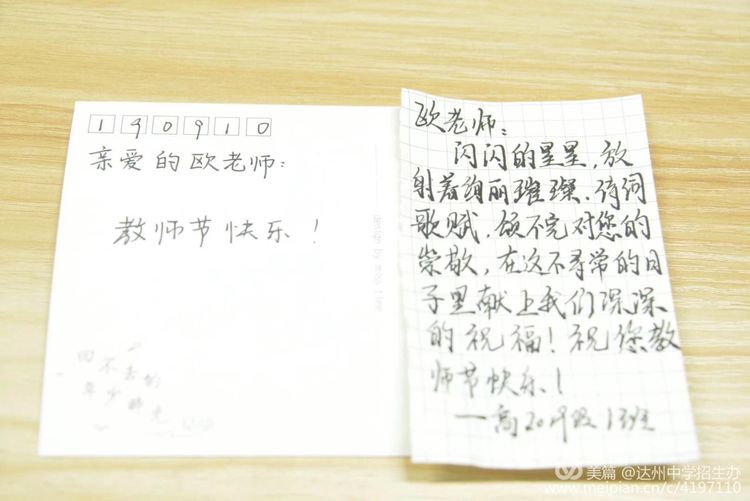 190910
亲爱的欧老师：
教师节快乐！
回不去的
年少时光
design by
欧老师：
闪闪的星星，放
射着绚丽璀璨、诗词
歌赋，颂不完对您的
崇敬，在这不寻常的日
子里献上我们深深
的祝福！祝您教
师节快乐！
美篇 @达州中学招生办
www.meipian.cn/c/4197110